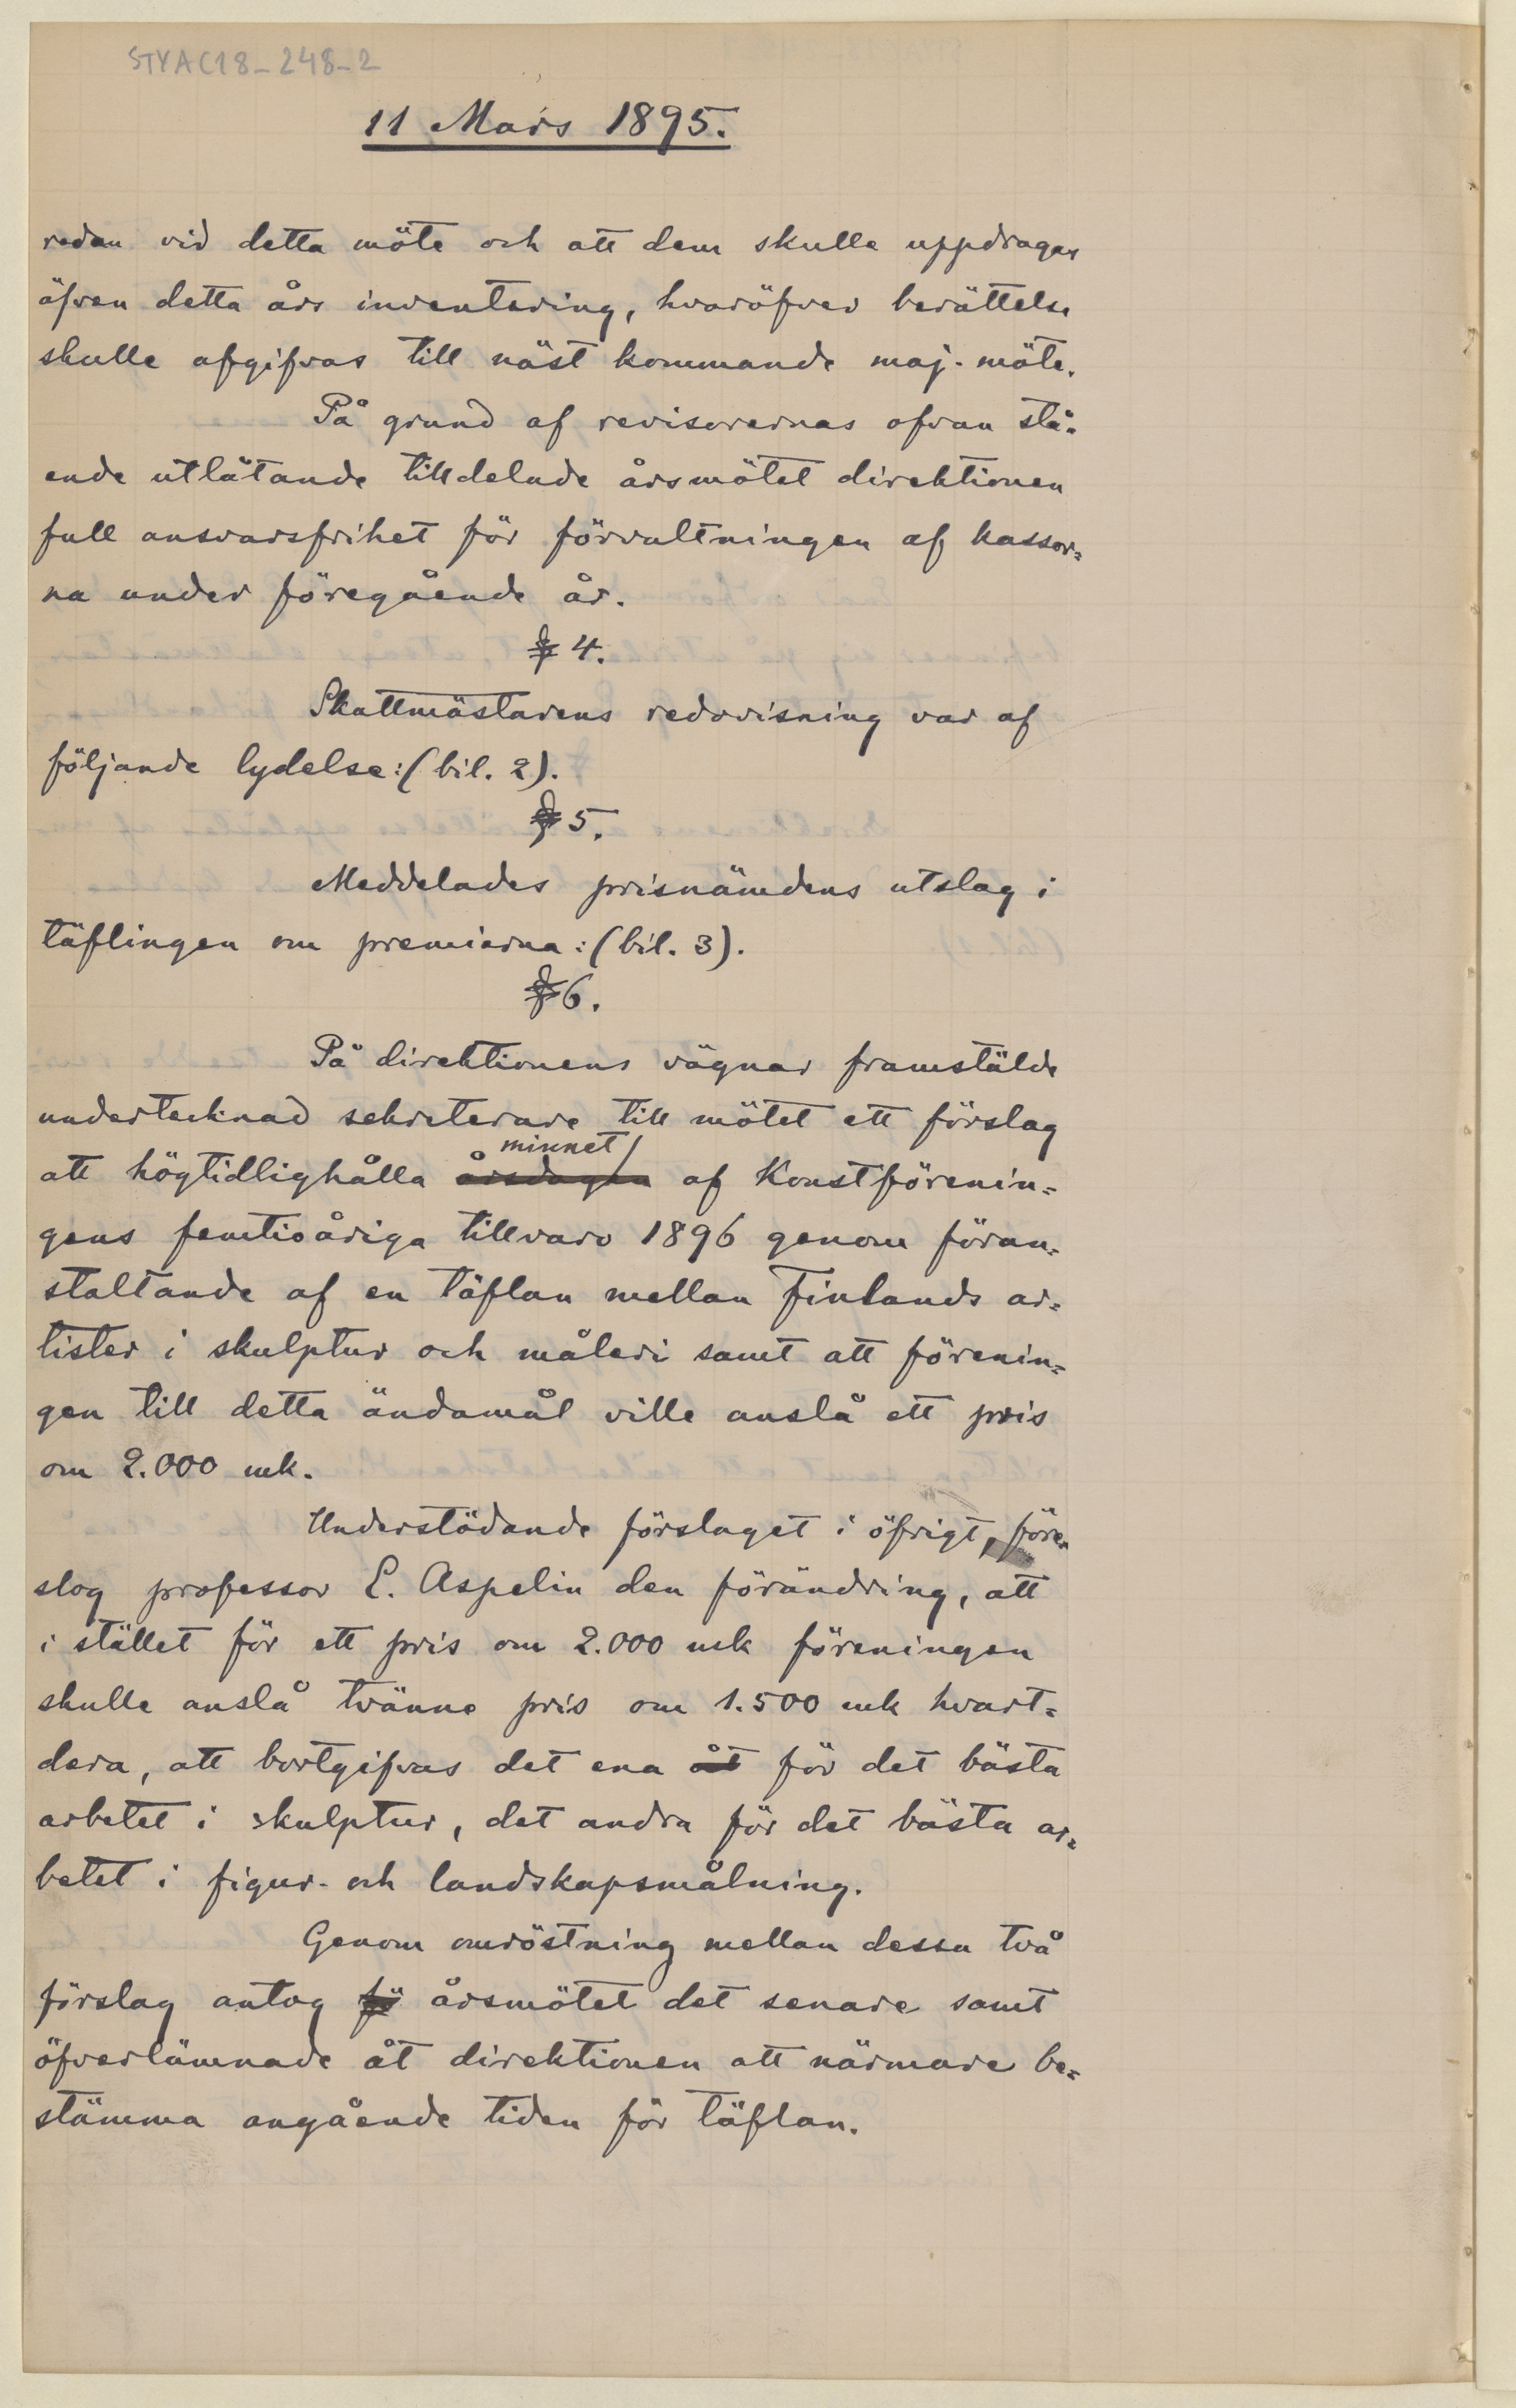 STYAC18_248_2
11 Mars 1895.
redan vid detta möte och att dem skulle uppdragas
äfven detta års inventering, hvaröfver berättelse
skulle afgifvas till näst kommande maj-möte.
På grund af revisorernas ofvan stå=
ende utlåtande tilldelade årsmötet direktionen
full ansvarsfrihet för förvaltningen af kassor=
na under föregående år.
§ 4.
Skattmästarens redovisning var af
följande lydelse: (bil. 2).
§ 5.
Meddelades prisnämdens utslag i
täflingen om premierna: (bil. 3).
§ 6.
På direktionens vägnar framstälde
undertecknad sekreterare till mötet ett förslag
minnet
att högtidlighålla årsdagen af Konstförenin=
gens femtioåriga tillvaro 1896 genom föran=
staltande af en täflan mellan Finlands ar=
tister i skulptur och måleri samt att förenin=
gen till detta ändamål ville anslå ett pris
om 2.000 mk.
Understödande förslaget i öfrigt, före=
slog professor E. Aspelin den förändring, att
i stället för ett pris om 2.000 mk föreningen
skulle anslå tvänne pris om 1.500 mk hvart=
dera, att bortgifvas det ena åt för det bästa
arbetet i skulptur, det andra för det bästa ar=
betet i figur- och landskapsmålning.
Genom omröstning mellan dessa två
förslag antog fö årsmötet det senare samt
öfverlämnade åt direktionen att närmare be=
stämma angående tiden för täflan.